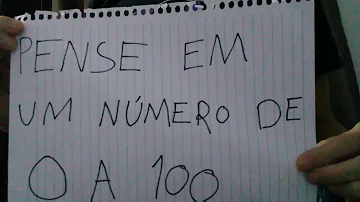 PENSE EM
UM NÚMERO DE
0 A 100